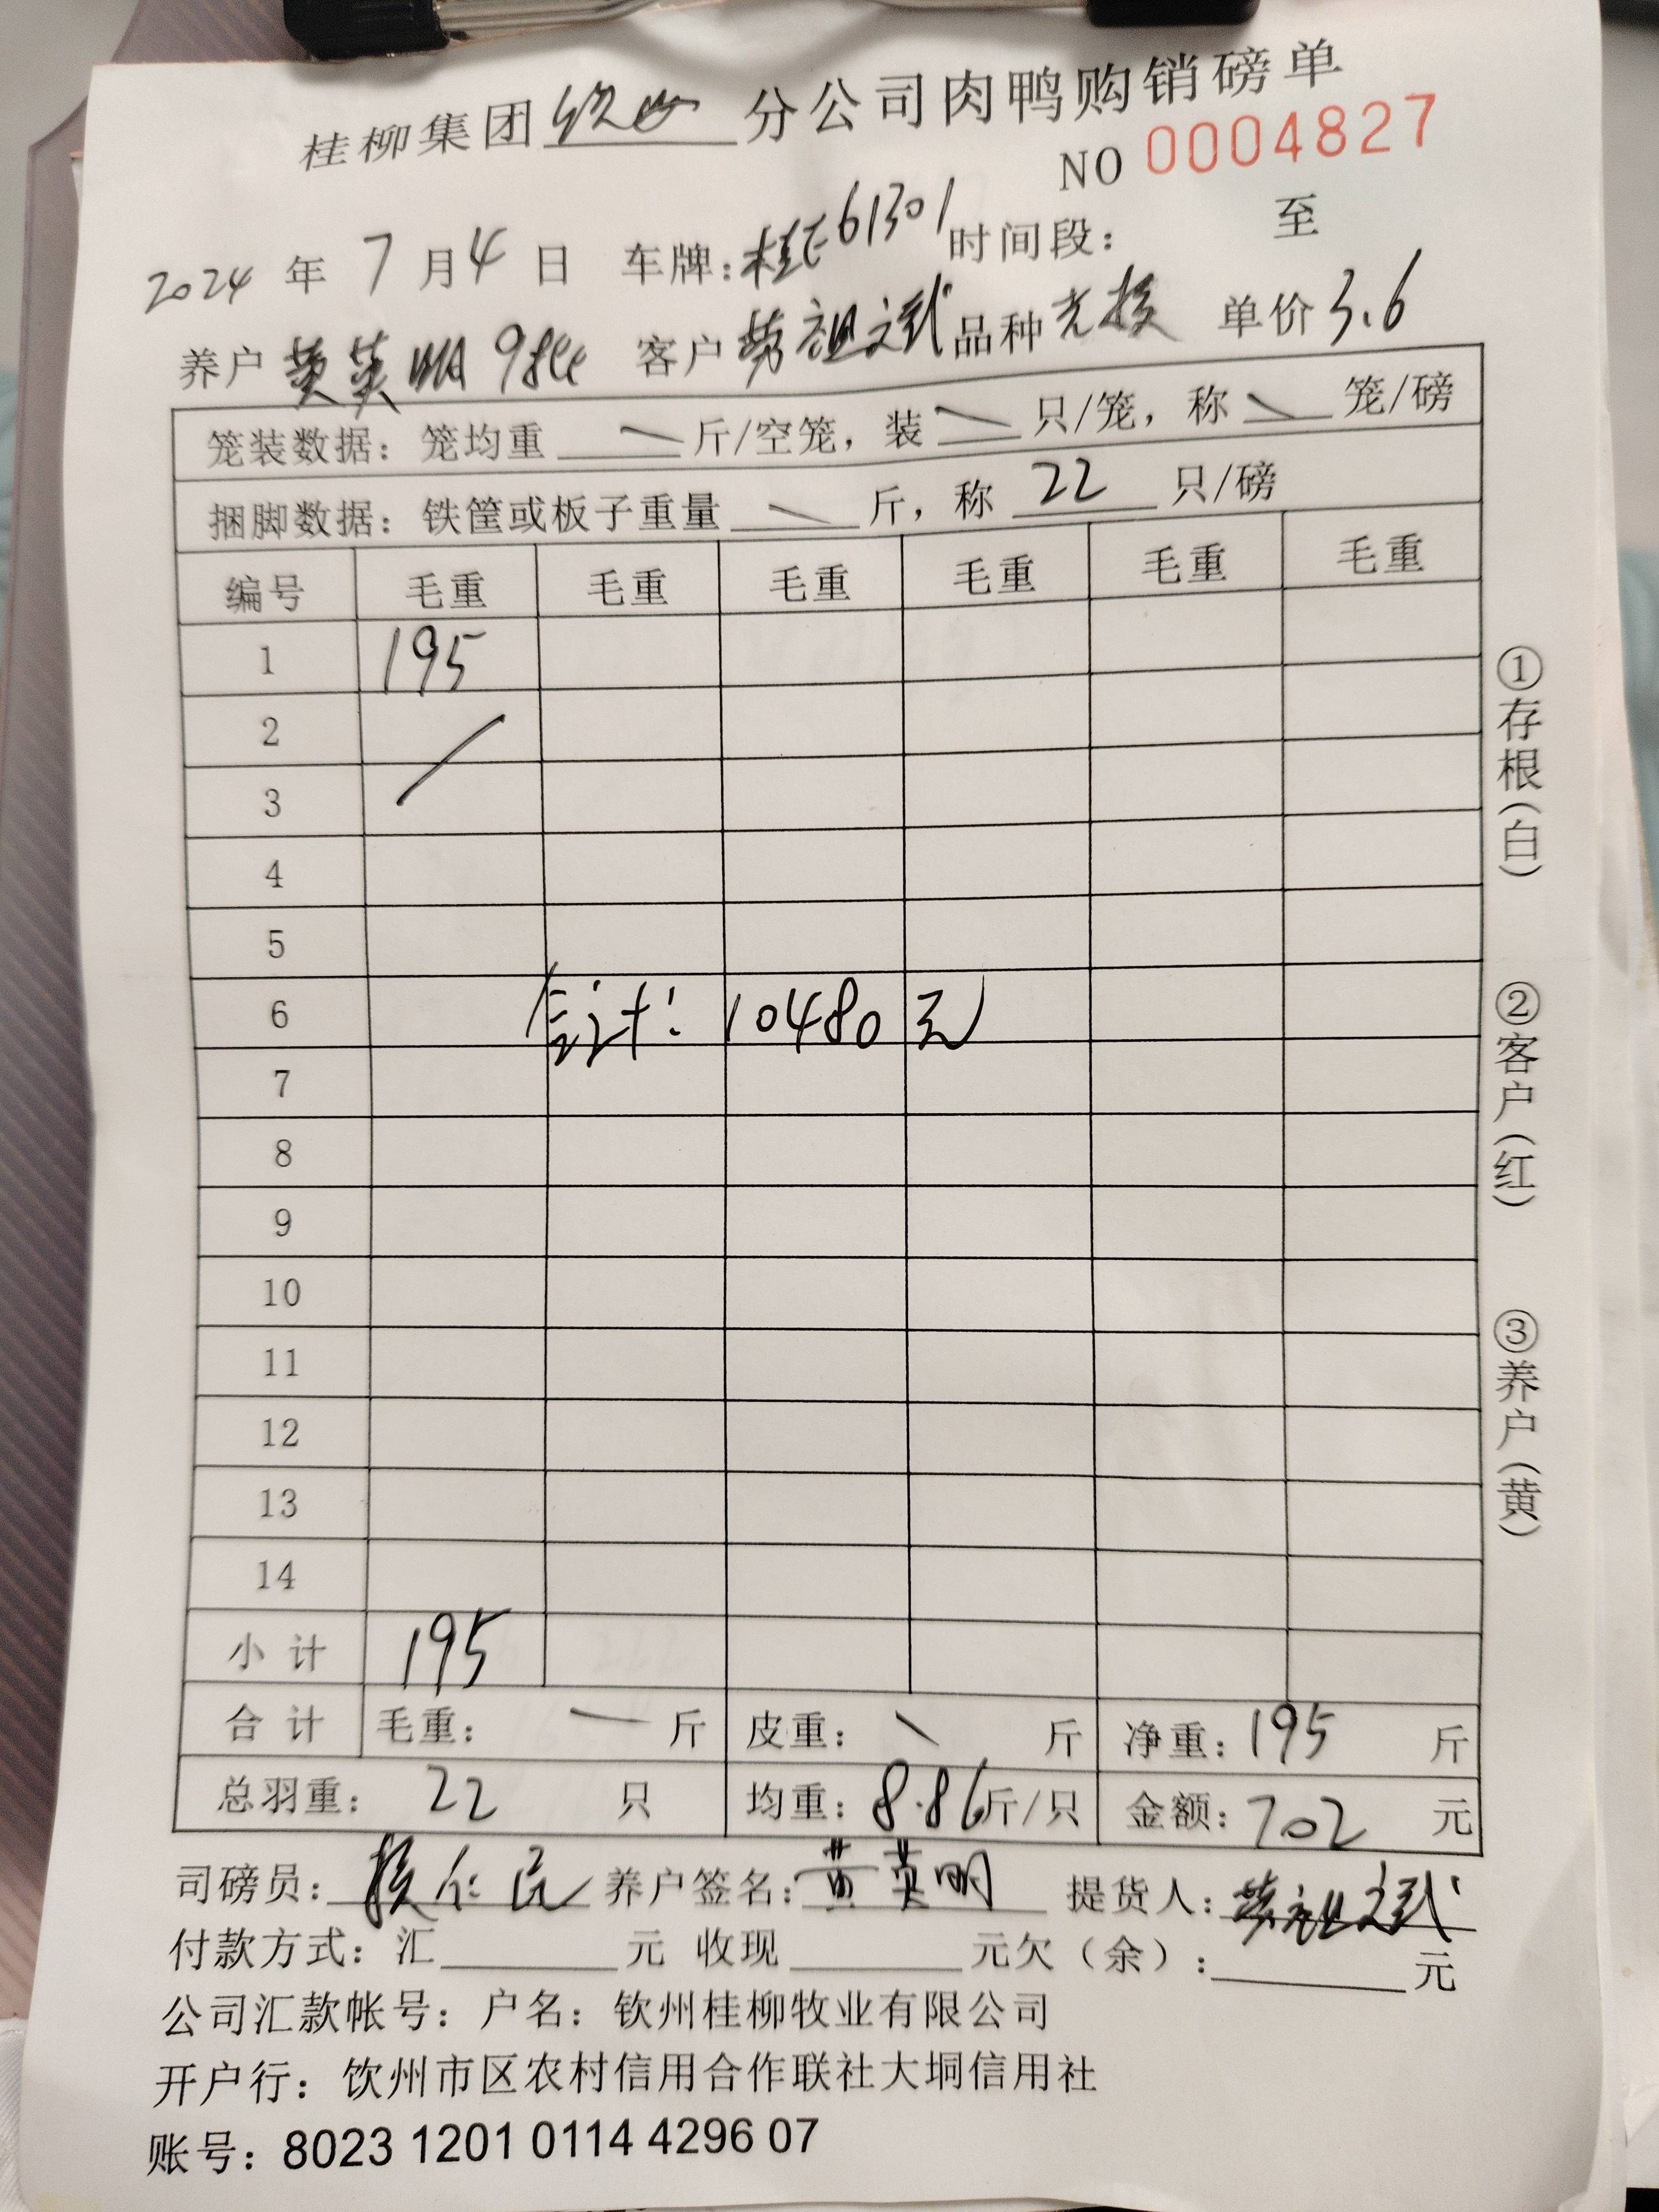 桂柳集团 钦州 分公司肉鸭购销磅单
NO 0004827
2024 年 7 月 4 日 车牌: 桂E61301 时间段: 至
养户 黄英明 客户 劳祖斌 品种 单价 3.6
笼装数据: 笼均重 斤/空笼, 装 只/笼, 称 笼/磅
捆脚数据: 铁筐或板子重量 斤, 称 22 只/磅
编号 毛重 毛重 毛重 毛重 毛重 毛重
1 195
2
3
4
5
6 合计: 10480 元
7
8
9
10
11
12
13
14
小 计 195
合 计 毛重: 斤 皮重: 斤 净重: 195 斤
总羽重: 22 只 均重: 8.86 斤/只 金额: 702 元
司磅员: 养户签名: 黄英明 提货人: 劳祖斌
付款方式: 汇 元 收现 元欠（余）: 元
公司汇款帐号: 户名: 钦州桂柳牧业有限公司
开户行: 饮州市区农村信用合作联社大垌信用社
账号: 8023 1201 0114 4296 07
①存根（白）
②客户（红）
③养户（黄）